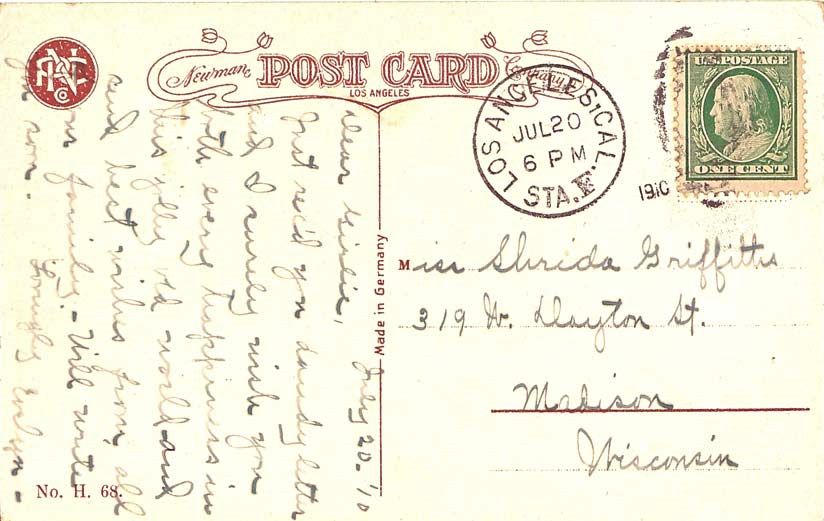 Newman POST CARD Company
LOS ANGELES
LOS ANGELES, CAL.
JUL 20
6 PM
STA. F
1910
U.S. POSTAGE
ONE CENT
Made in Germany
Miss Shrida Griffiths
319 W. Dayton St.
Madison
Wisconsin
No. H. 68.
July 20-'10
Dear Girlie,
Just rec'd you dandy letter
and I surely wish you
both every happiness in
this jolly old world and
and best wishes from all
our family. - Will write
soon.
Lovingly Evelyn -